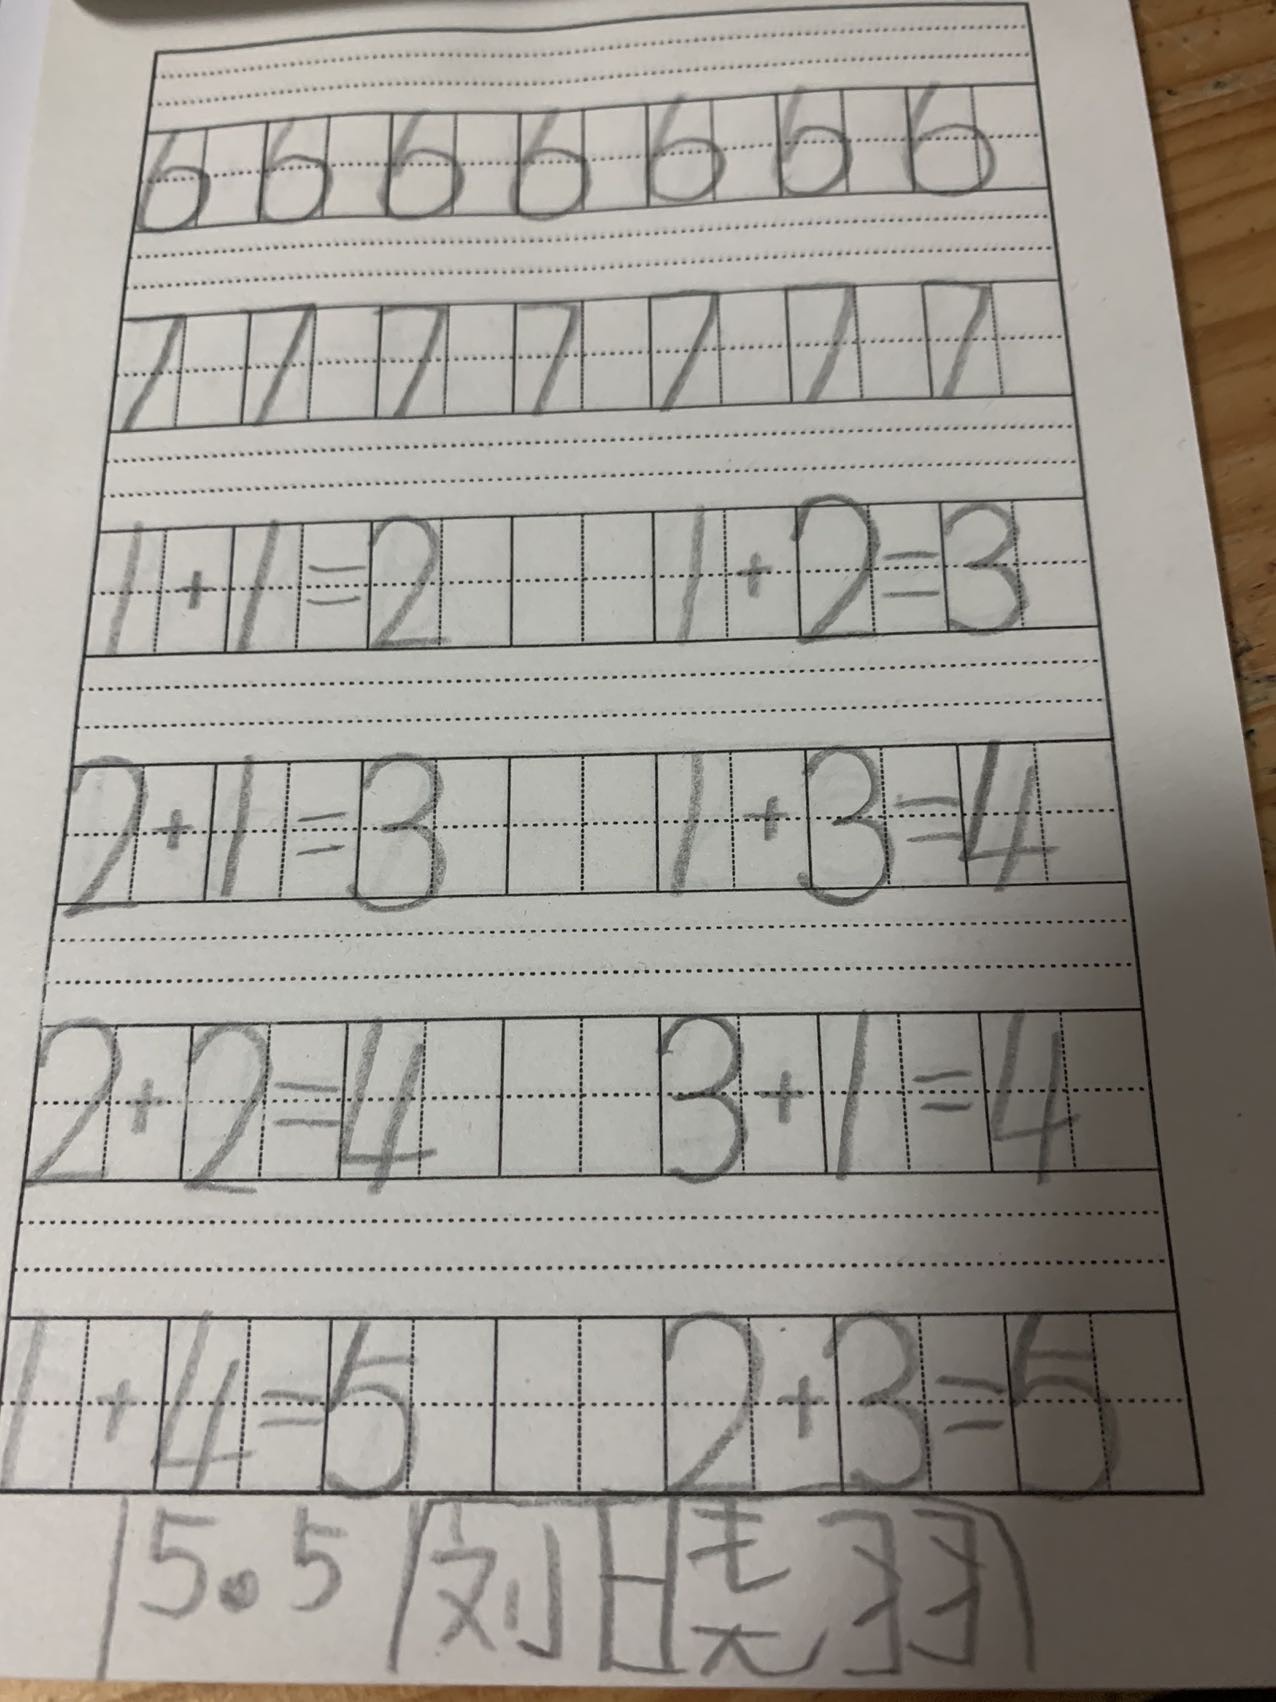 6 6 6 6 6 6 6
7 7 7 7 7 7 7
1+1=2 1+2=3
2+1=3 1+3=4
2+2=4 3+1=4
1+4=5 2+3=5
5.5 刘晓羽